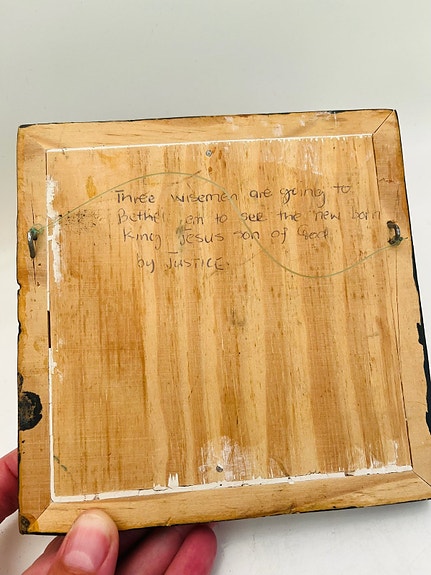 Three wisemen are going to
Bethel em to see the new born
King Jesus son of God
by JUSTICE.